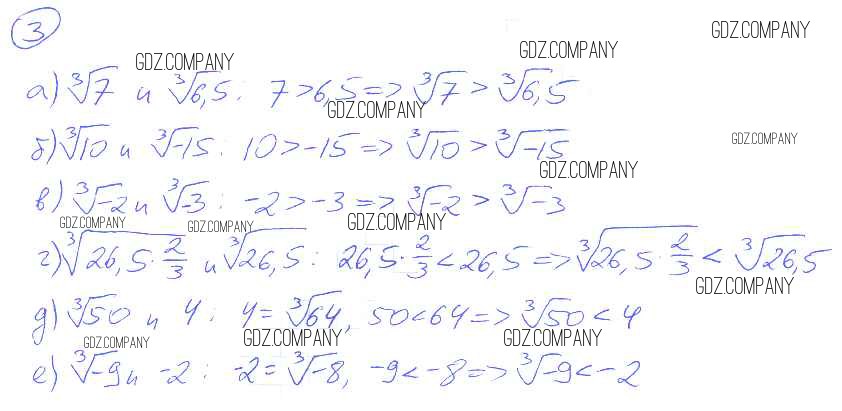 3
GDZ.COMPANY
GDZ.COMPANY
GDZ.COMPANY
а) ∛7 и ∛6,5 : 7 > 6,5 => ∛7 > ∛6,5
GDZ.COMPANY
GDZ.COMPANY
б) ∛10 и ∛-15 : 10 > -15 => ∛10 > ∛-15
GDZ.COMPANY
в) ∛-2 и ∛-3 : -2 > -3 => ∛-2 > ∛-3
GDZ.COMPANY GDZ.COMPANY GDZ.COMPANY
г) ∛(26,5 · 2/3) и ∛26,5 : 26,5 · 2/3 < 26,5 => ∛(26,5 · 2/3) < ∛26,5
GDZ.COMPANY
д) ∛50 и 4 : 4 = ∛64, 50 < 64 => ∛50 < 4
GDZ.COMPANY GDZ.COMPANY GDZ.COMPANY
е) ∛-9 и -2 : -2 = ∛-8, -9 < -8 => ∛-9 < -2